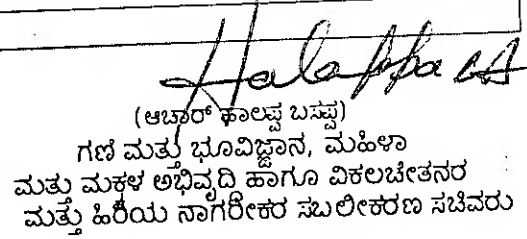 Halappa
(ಆಚಾರ್ ಹಾಲಪ್ಪ ಬಸಪ್ಪ)
ಗಣಿ ಮತ್ತು ಭೂವಿಜ್ಞಾನ, ಮಹಿಳಾ
ಮತ್ತು ಮಕ್ಕಳ ಅಭಿವೃದ್ಧಿ ಹಾಗೂ ವಿಕಲಚೇತನರ
ಮತ್ತು ಹಿರಿಯ ನಾಗರೀಕರ ಸಬಲೀಕರಣ ಸಚಿವರು